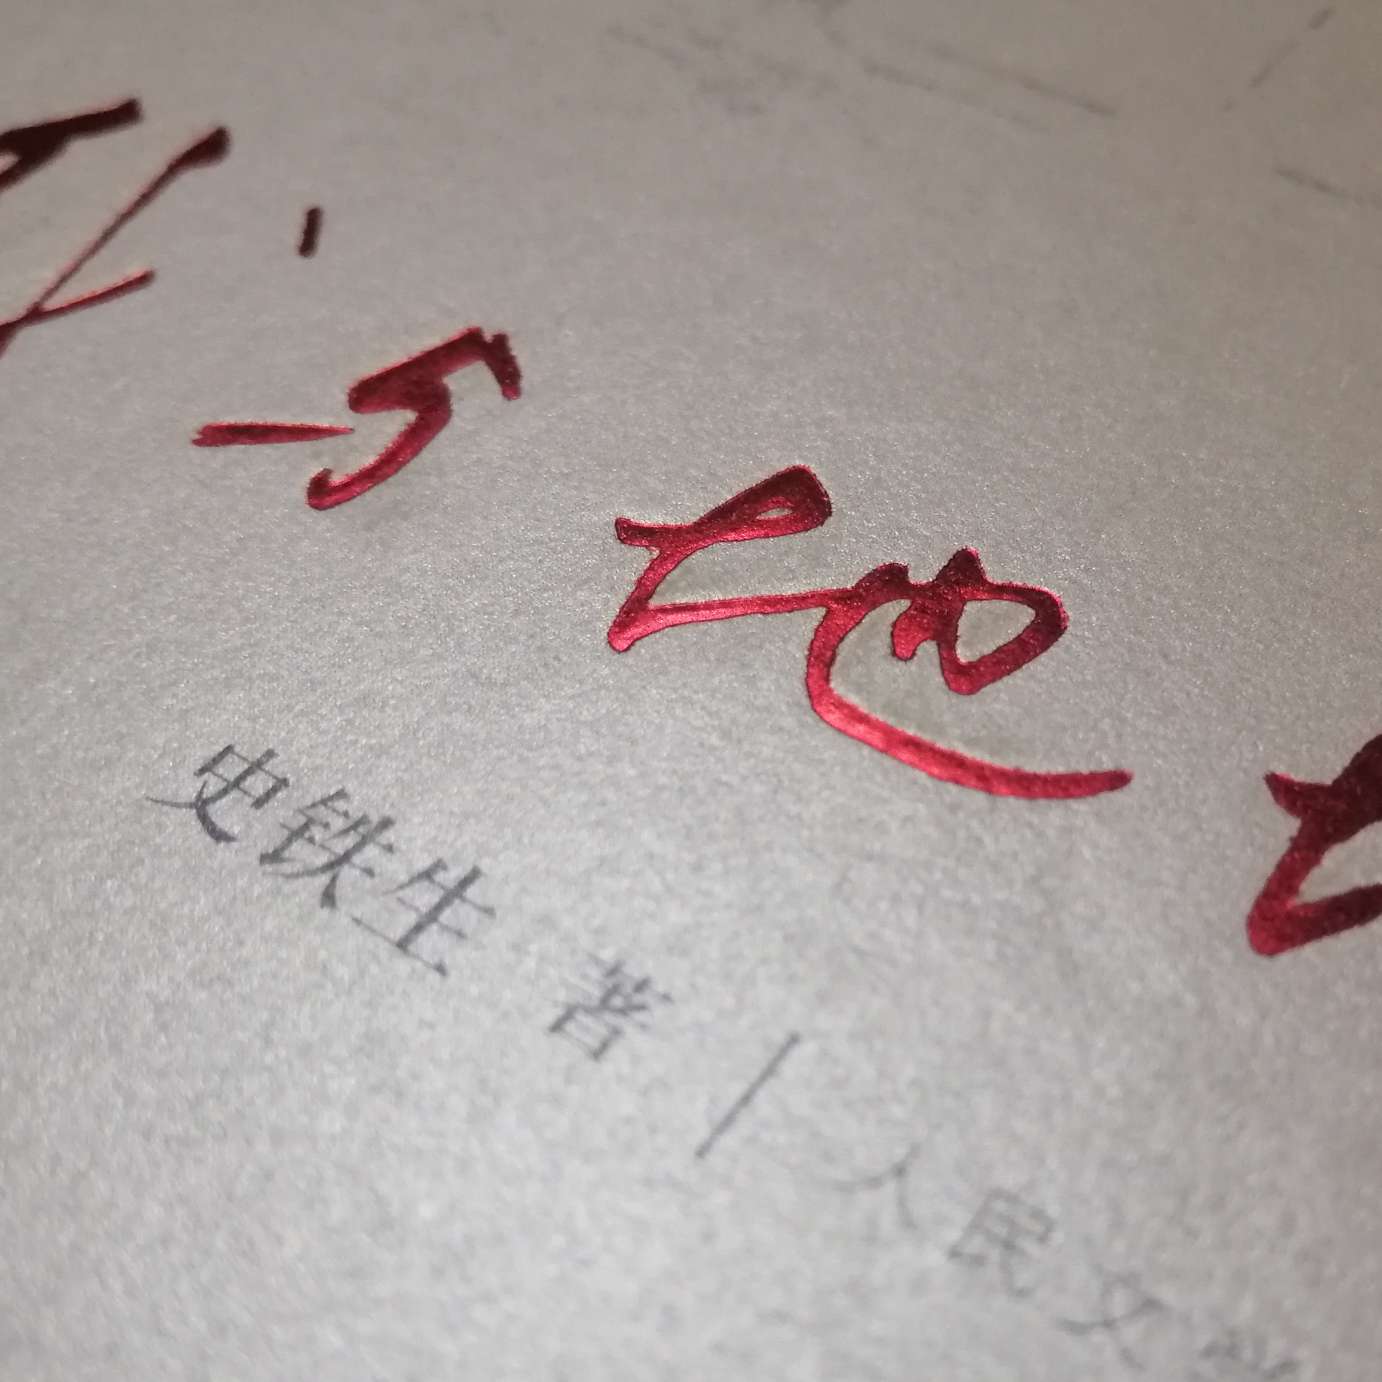 与地
史铁生 著 | 人民文